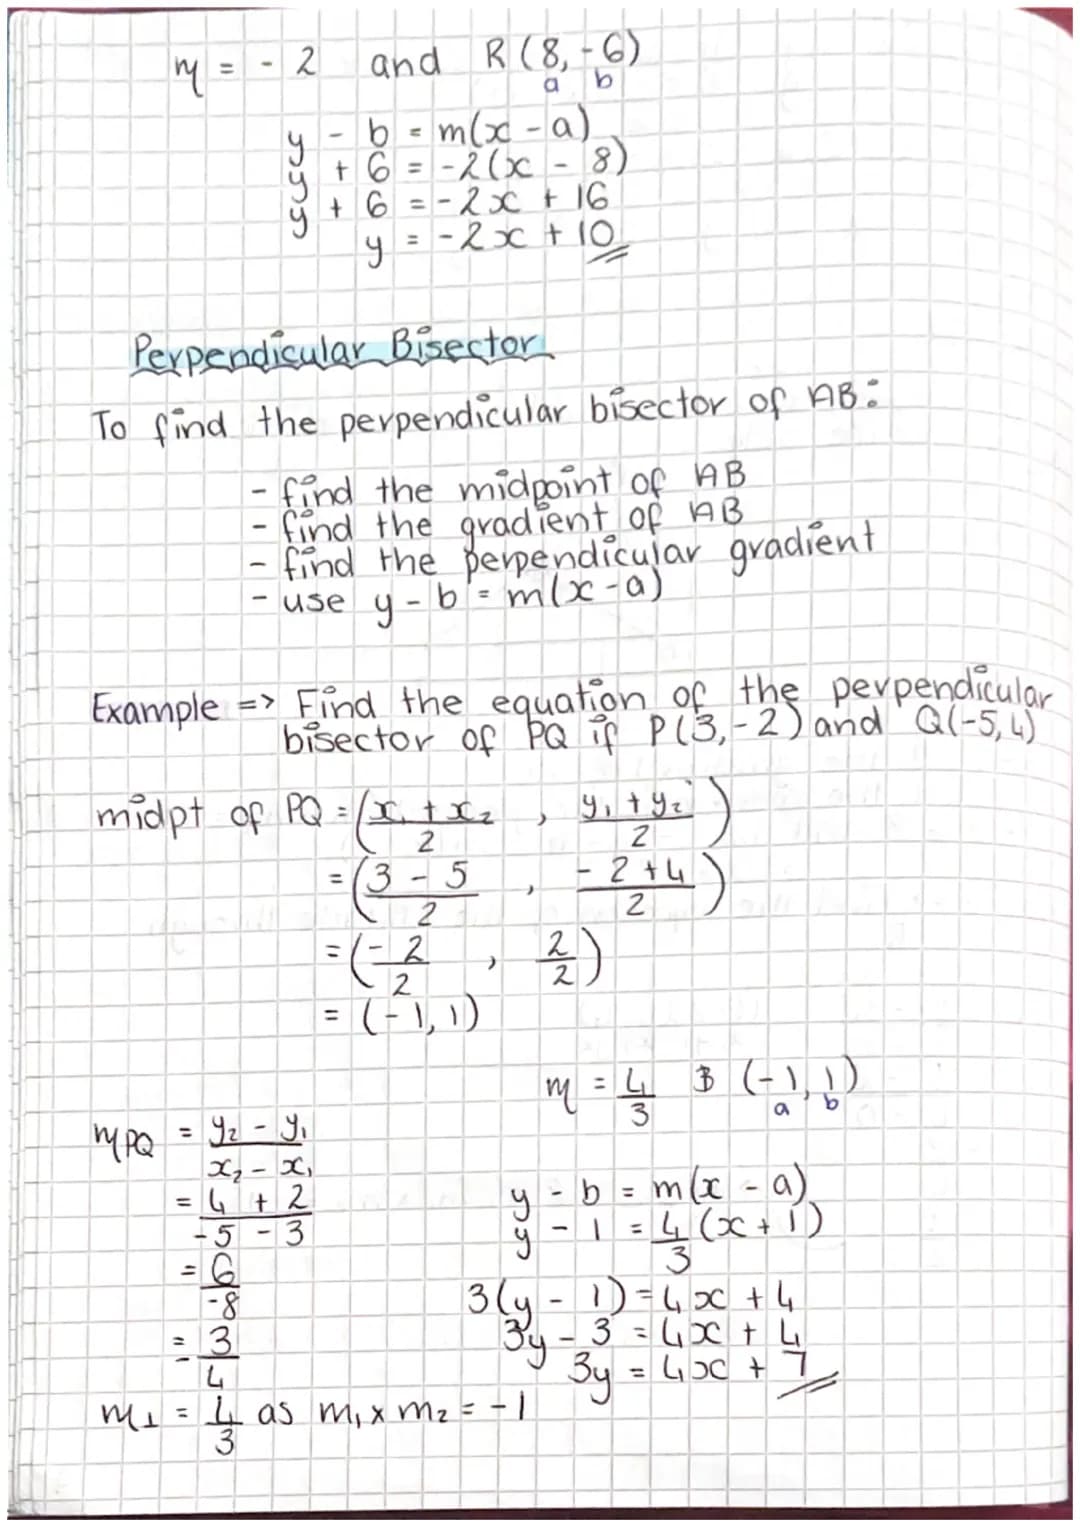 m = -2 and R(8, -6)
a b
y - b = m(x - a)
y + 6 = -2(x - 8)
y + 6 = -2x + 16
y = -2x + 10
Perpendicular Bisector
To find the perpendicular bisector of AB:
- find the midpoint of AB
- find the gradient of AB
- find the perpendicular gradient
- use y - b = m(x - a)
Example => Find the equation of the perpendicular
bisector of PQ if P(3, -2) and Q(-5, 4)
midpt of PQ = (x₁ + x₂ / 2 , y₁ + y₂ / 2)
= (3 - 5 / 2 , -2 + 4 / 2)
= (-2 / 2 , 2 / 2)
= (-1, 1)
mPQ = y₂ - y₁ / x₂ - x₁
= 4 + 2 / -5 - 3
= 6 / -8
= -3 / 4
m⊥ = 4/3 as m₁ x m₂ = -1
m = 4/3 B (-1, 1)
a b
y - b = m(x - a)
y - 1 = 4/3 (x + 1)
3(y - 1) = 4x + 4
3y - 3 = 4x + 4
3y = 4x + 7